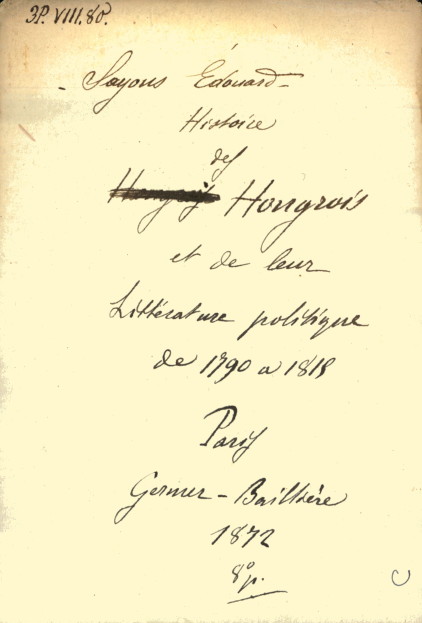 3P. VIII. 80.
Sayous Édouard
Histoire
des
Hongrois
et de leur
Littérature politique
de 1790 a 1815
Paris
Germer-Baillière
1872
8º p.